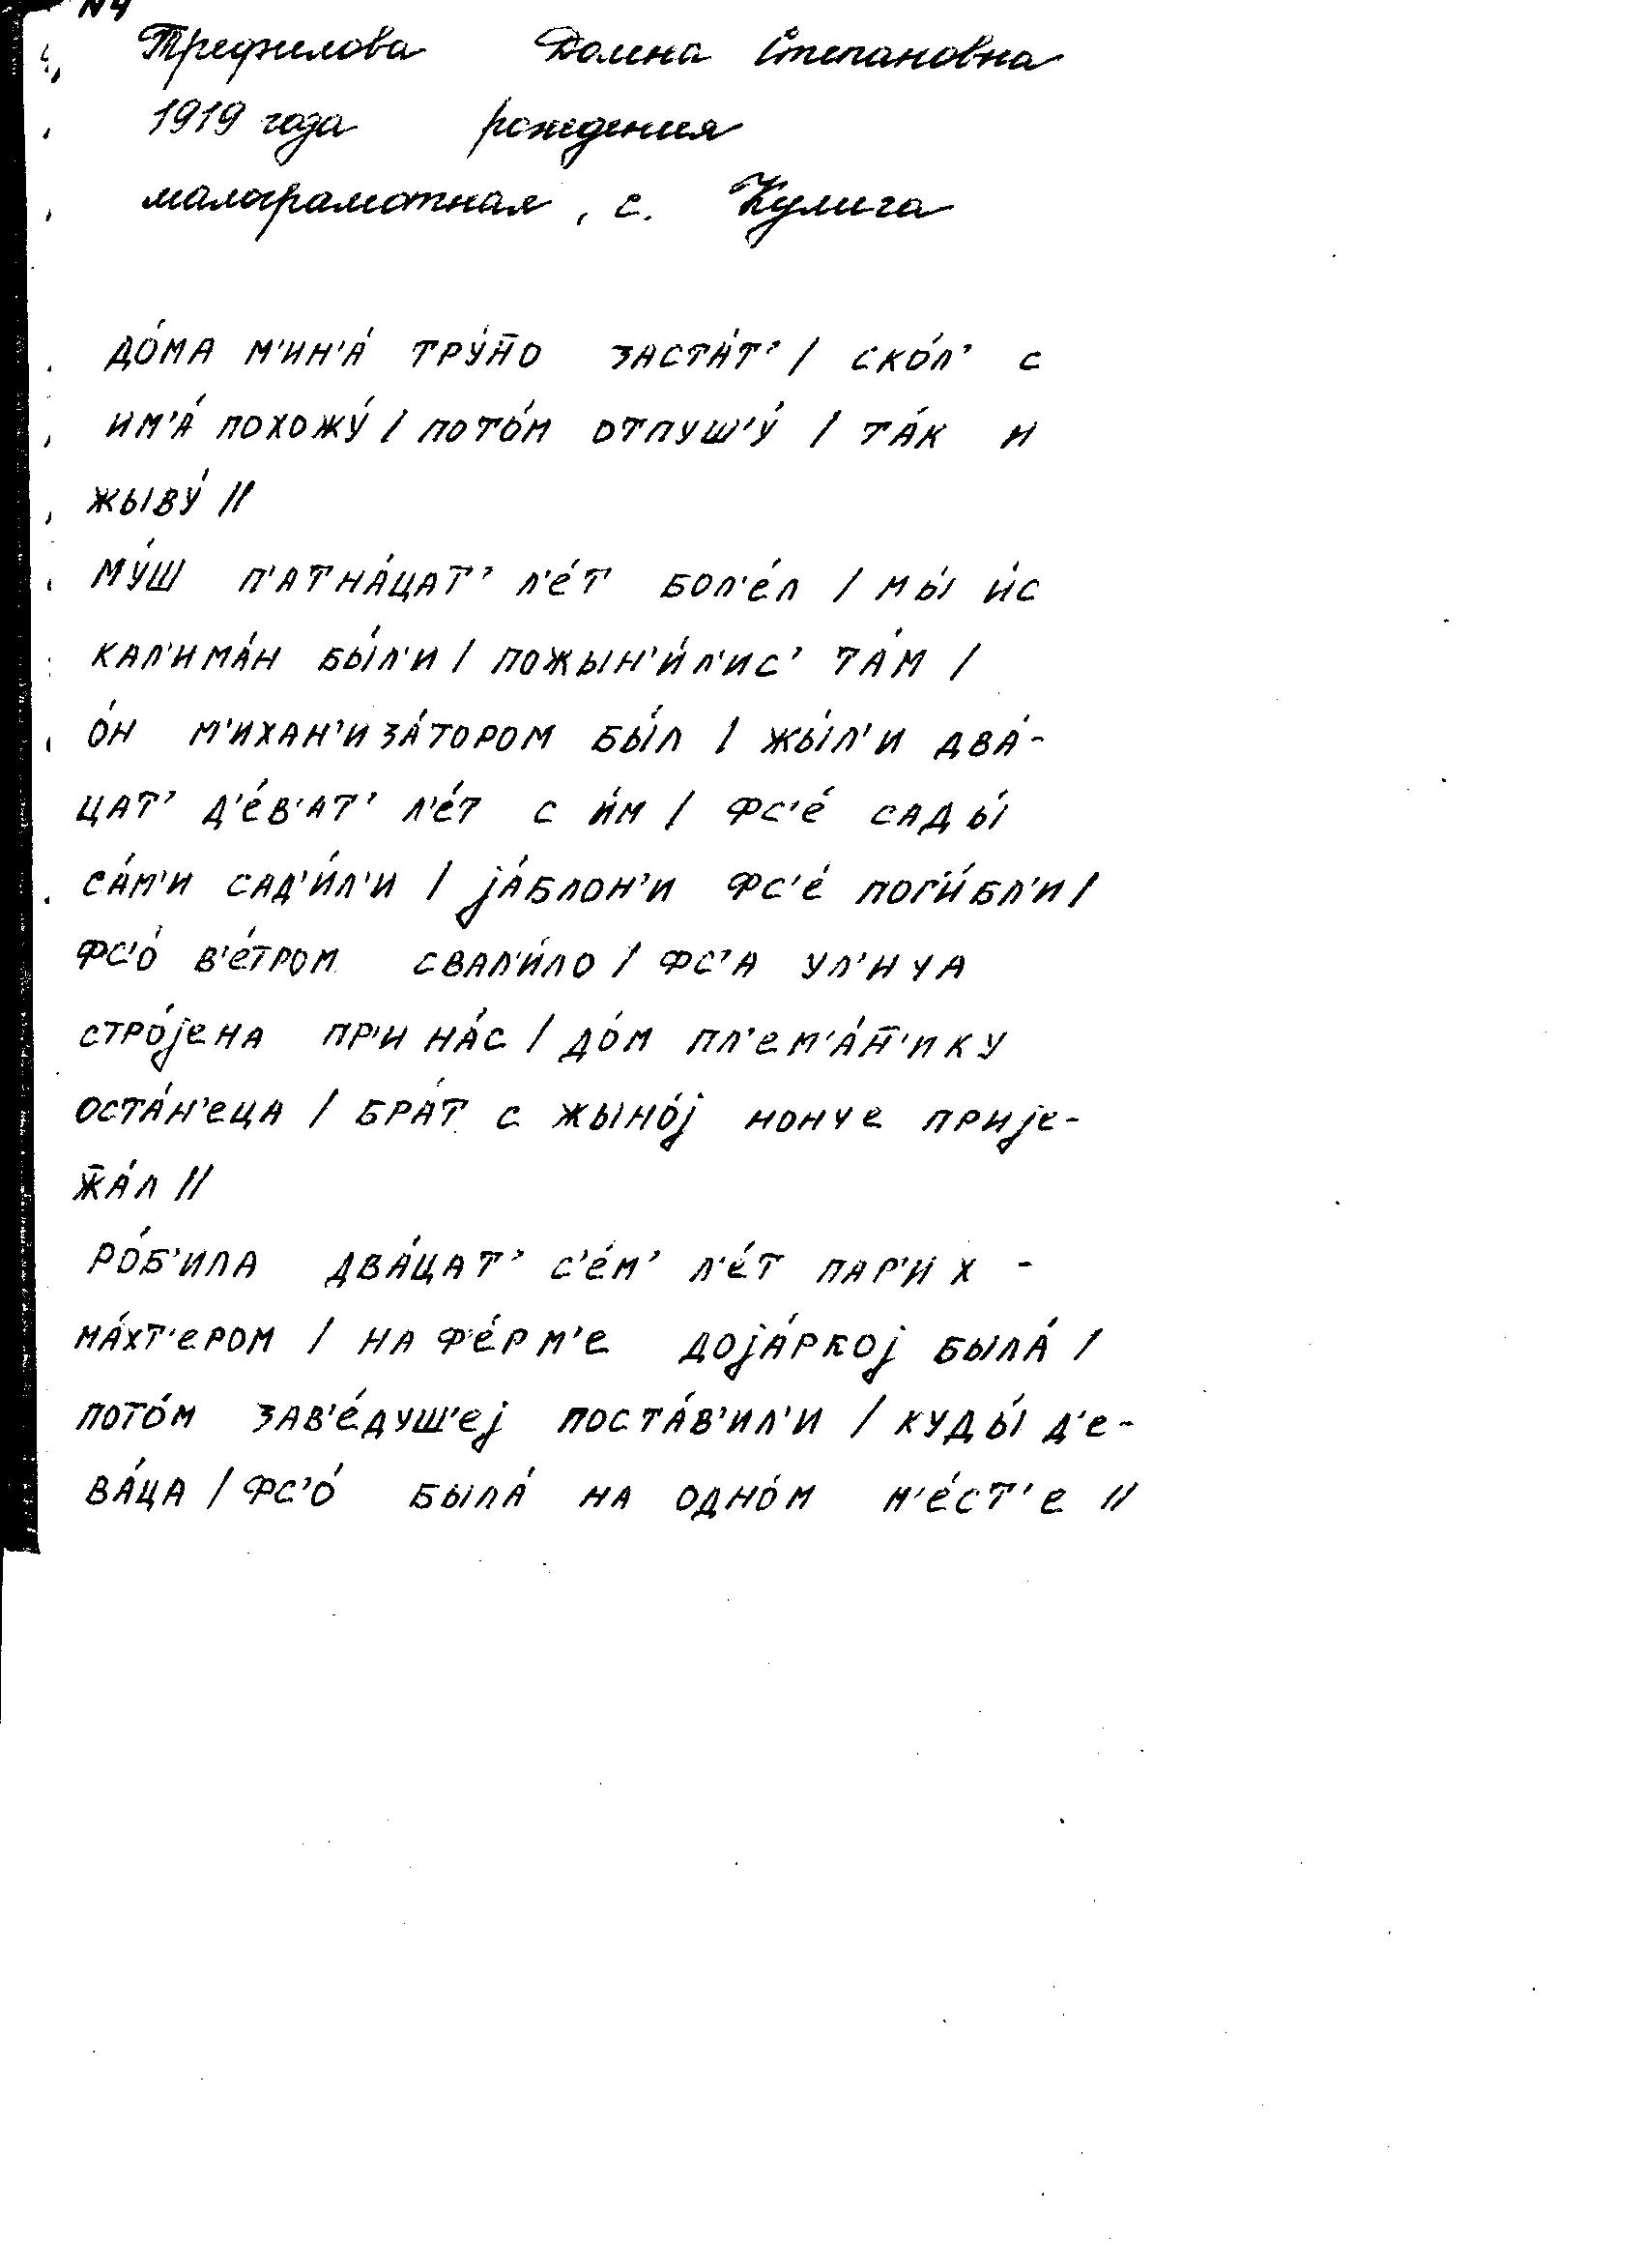 N4
Трефилова Домна Степановна
1919 года рождения
малограмотная, с. Кулига
ДО́МА М'ИН'А́ ТРУ́Н̄О ЗАСТА́Т' / СКО́Л' С
ИМ'А́ ПОХОЖУ́ / ПОТО́М ОТПУШ'У́ / ТА́К И
ЖЫВУ́ //
МУ́Ш П'АТНА́ЦАТ' Л'Е́Т БОЛ'Е́Л / МЫ́ И́С
КАЛ'ИМА́Н БЫ́Л'И / ПОЖЫН'И́Л'ИС' ТА́М /
О́Н М'ИХАН'ИЗА́ТОРОМ БЫ́Л / ЖЫ́Л'И ДВА́-
ЦАТ' Д'Е́В'АТ' Л'Е́Т С И́М / ФС'Е́ САДЫ́
СА́М'И САД'И́Л'И / JА́БЛОН'И ФС'Е́ ПОГ'И́БЛ'И /
ФС'О́ В'Е́ТРОМ СВАЛ'И́ЛО / ФС'А УЛ'ИЧА
СТРО́JЕНА ПР'И НА́С / ДО́М ПЛ'ЕМ'А́Н̄'ИКУ
ОСТА́Н'ЕЦА / БРА́Т С ЖЫНО́J НОНЧЕ ПРИJЕ-
Ж̄А́Л //
РО́Б'ИЛА ДВА́ЦАТ' С'Е́М' Л'Е́Т ПАР'ИХ-
МА́ХТ'ЕРОМ / НА Ф'Е́РМ'Е ДОJА́РКОJ БЫЛА́ /
ПОТО́М ЗАВ'Е́ДУШ'ЕJ ПОСТА́В'ИЛ'И / КУДЫ́ Д'Е-
ВА́ЦА / ФС'О́ БЫЛА́ НА ОДНО́М М'Е́СТ'Е //